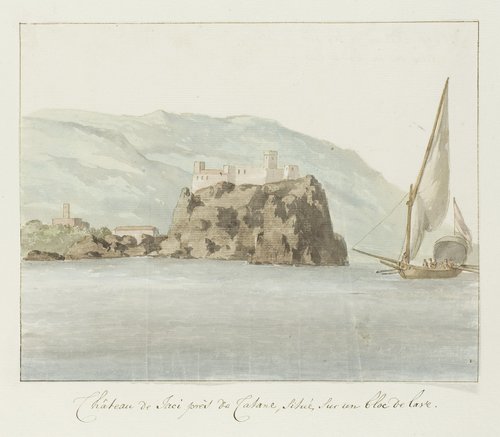 Château de Jaci près de Catane, Situé, Sur un bloc de lave.